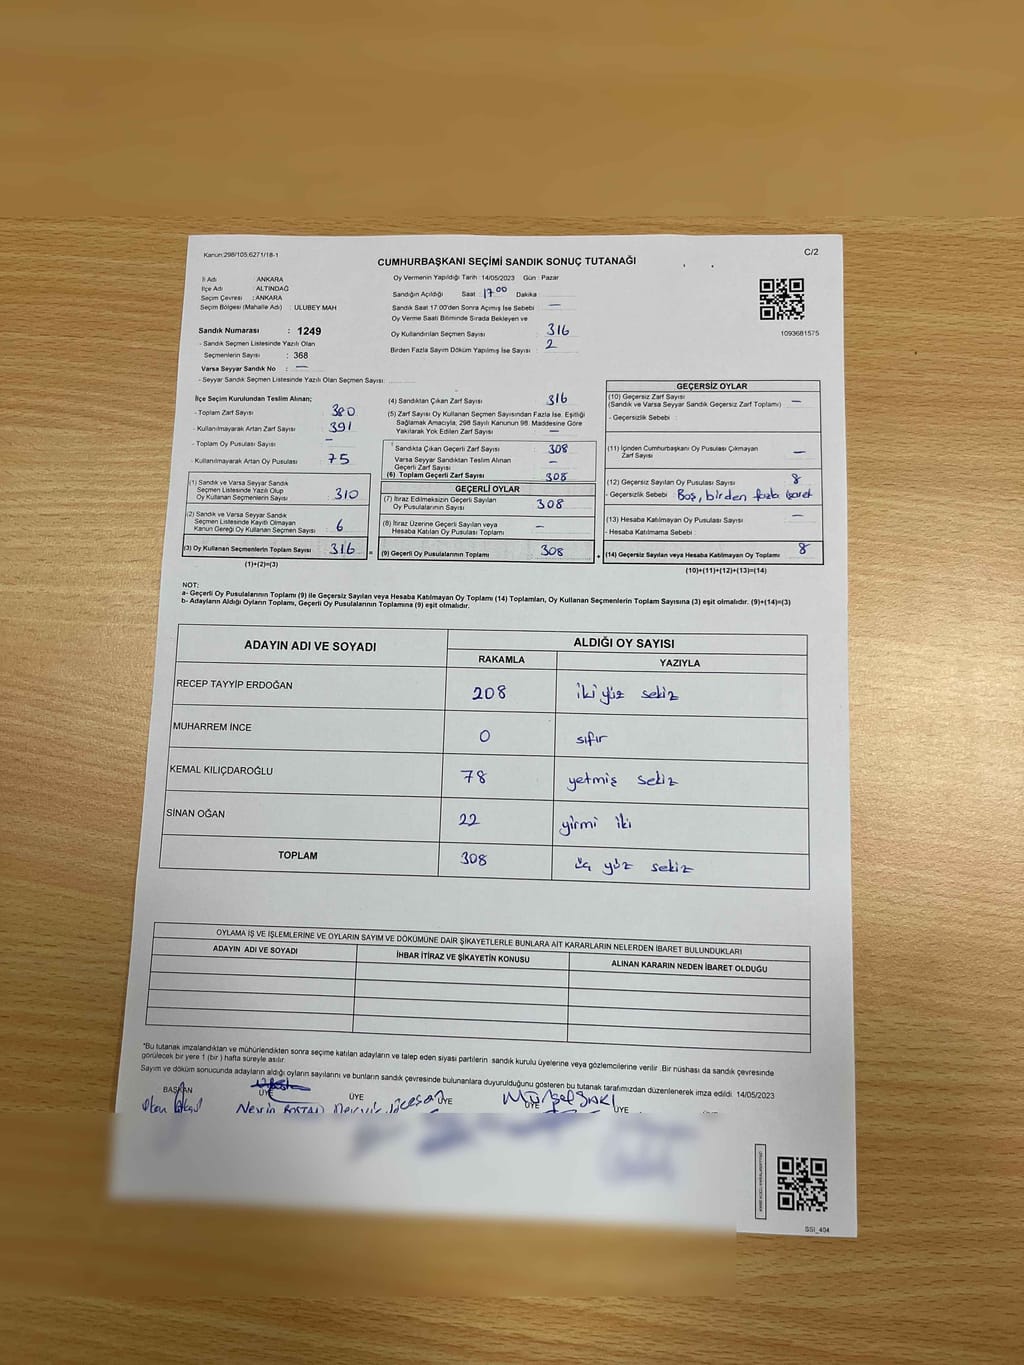 Kanun:298/105;6271/18-1
C/2
CUMHURBAŞKANI SEÇİMİ SANDIK SONUÇ TUTANAĞI
İl Adı : ANKARA
İlçe Adı : ALTINDAĞ
Seçim Çevresi : ANKARA
Seçim Bölgesi (Mahalle Adı) : ULUBEY MAH
Sandık Numarası : 1249
- Sandık Seçmen Listesinde Yazılı Olan
Seçmenlerin Sayısı : 368
Varsa Seyyar Sandık No : —
- Seyyar Sandık Seçmen Listesinde Yazılı Olan Seçmen Sayısı:
Oy Vermenin Yapıldığı Tarih : 14/05/2023 Gün : Pazar
Sandığın Açıldığı Saat 17.00 Dakika
Sandık Saat 17:00'den Sonra Açımış İse Sebebi —
Oy Verme Saati Bitiminde Sırada Bekleyen ve
Oy Kullandırılan Seçmen Sayısı 316
Birden Fazla Sayım Döküm Yapılmış İse Sayısı 2
1093681575
İlçe Seçim Kurulundan Teslim Alınan;
- Toplam Zarf Sayısı 380
- Kullanılmayarak Artan Zarf Sayısı 391
- Toplam Oy Pusulası Sayısı —
- Kullanılmayarak Artan Oy Pusulası 75
(1) Sandık ve Varsa Seyyar Sandık
Seçmen Listesinde Yazılı Olup
Oy Kullanan Seçmenlerin Sayısı : 310
(2) Sandık ve Varsa Seyyar Sandık
Seçmen Listesinde Kayıtlı Olmayan
Kanun Gereği Oy Kullanan Seçmen Sayısı : 6
(3) Oy Kullanan Seçmenlerin Toplam Sayısı : 316 =
(1)+(2)=(3)
(4) Sandıktan Çıkan Zarf Sayısı 316
(5) Zarf Sayısı Oy Kullanan Seçmen Sayısından Fazla İse, Eşitliği
Sağlamak Amacıyla; 298 Sayılı Kanunun 98. Maddesine Göre
Yakılarak Yok Edilen Zarf Sayısı —
Sandıkta Çıkan Geçerli Zarf Sayısı 308
Varsa Seyyar Sandıktan Teslim Alınan
Geçerli Zarf Sayısı —
(6) Toplam Geçerli Zarf Sayısı 308
GEÇERLİ OYLAR
(7) İtiraz Edilmeksizin Geçerli Sayılan
Oy Pusulalarının Sayısı 308
(8) İtiraz Üzerine Geçerli Sayılan veya
Hesaba Katılan Oy Pusulaları Toplamı —
(9) Geçerli Oy Pusulalarının Toplamı 308 +
GEÇERSİZ OYLAR
(10) Geçersiz Zarf Sayısı
(Sandık ve Varsa Seyyar Sandık Geçersiz Zarf Toplamı) —
- Geçersizlik Sebebi :
(11) İçinden Cumhurbaşkanı Oy Pusulası Çıkmayan
Zarf Sayısı —
(12) Geçersiz Sayılan Oy Pusulası Sayısı 8
- Geçersizlik Sebebi Boş, birden fazla işaret
(13) Hesaba Katılmayan Oy Pusulası Sayısı —
- Hesaba Katılmama Sebebi :
(14) Geçersiz Sayılan veya Hesaba Katılmayan Oy Toplamı 8
(10)+(11)+(12)+(13)=(14)
NOT:
a- Geçerli Oy Pusulalarının Toplamı (9) ile Geçersiz Sayılan veya Hesaba Katılmayan Oy Toplamı (14) Toplamları, Oy Kullanan Seçmenlerin Toplam Sayısına (3) eşit olmalıdır. (9)+(14)=(3)
b- Adayların Aldığı Oyların Toplamı, Geçerli Oy Pusulalarının Toplamına (9) eşit olmalıdır.
ADAYIN ADI VE SOYADI ALDIĞI OY SAYISI
RAKAMLA YAZIYLA
RECEP TAYYİP ERDOĞAN 208 iki yüz sekiz
MUHARREM İNCE 0 sıfır
KEMAL KILIÇDAROĞLU 78 yetmiş sekiz
SİNAN OĞAN 22 yirmi iki
TOPLAM 308 üç yüz sekiz
OYLAMA İŞ VE İŞLEMLERİNE VE OYLARIN SAYIM VE DÖKÜMÜNE DAİR ŞİKAYETLERLE BUNLARA AİT KARARLARIN NELERDEN İBARET BULUNDUKLARI
ADAYIN ADI VE SOYADI İHBAR İTİRAZ VE ŞİKAYETİN KONUSU ALINAN KARARIN NEDEN İBARET OLDUĞU
*Bu tutanak imzalandıktan ve mühürlendikten sonra seçime katılan adayların ve talep eden siyasi partilerin sandık kurulu üyelerine veya gözlemcilerine verilir. Bir nüshası da sandık çevresinde
görülecek bir yere 1 (bir) hafta süreyle asılır.
Sayım ve döküm sonucunda adayların aldığı oyların sayılarını ve bunların sandık çevresinde bulunanlara duyurulduğunu gösteren bu tutanak tarafımızdan düzenlenerek imza edildi. 14/05/2023
BAŞKAN ÜYE ÜYE ÜYE ÜYE ÜYE
SSI_404